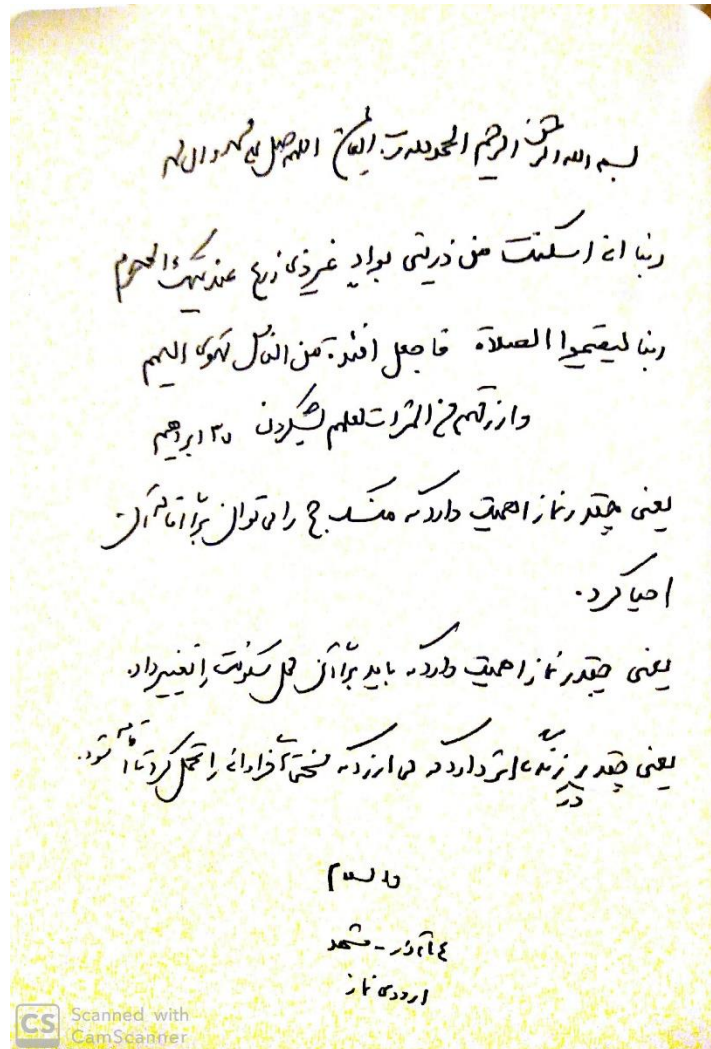 بسم الله الرحمن الرحیم الحمدلله رب العالمین اللهم صل علی محمد و ال محمد
ربنا انی اسکنت من ذریتی بوادٍ غیرذی زرع عندبیتک المحرم
ربنا لیقیموا الصلاة فاجعل افئدة من الناس تهوی الیهم
وارزقهم من الثمرات لعلهم یشکرون ابراهیم
یعنی چقدر نماز اهمیت دارد که مناسک حج را می توان برای اقامه آن
احیا کرد.
یعنی چقدر نماز اهمیت دارد که باید برای آن محل سکونت را تغییر داد.
یعنی چقدر در زندگی ما اثر دارد که می ارزد که سختی فراوانی را تحمل کرد تا اقامه شود.
والسلام
١٤ آذر - مشهد
اردوی نماز
CS Scanned with
CamScanner